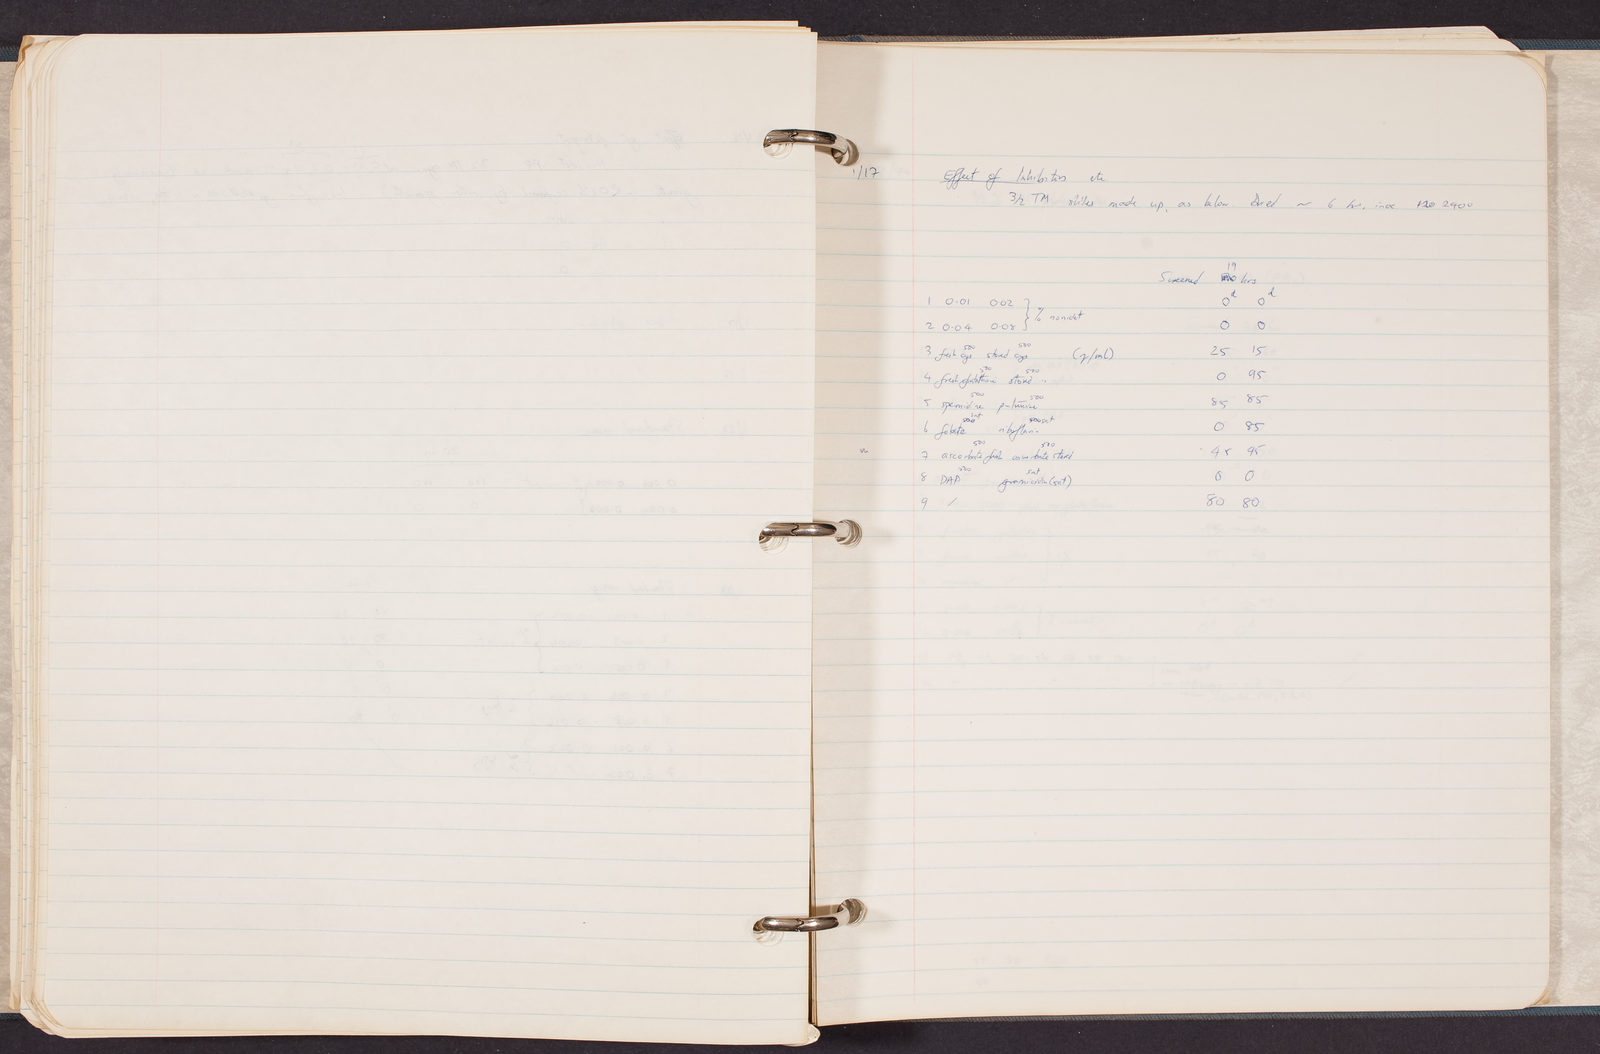 1/17 Effect of Inhibitors etc
3/2 TM slides made up, as below. Dried ~ 6 hrs, inoc 2400
Screened 19 hrs
1 0.01 0.02 } % nonidet 0d 0d
2 0.04 0.08 0 0
3 fresh cys 500 stored cys 500 (γ/ml) 25 15
4 fresh glutathione 500 stored " 500 0 95
5 spermidine 500 putrescine 500 85 85
6 folate sat riboflavin sat 0 85
7 ascorbate fresh 500 ascorbate stored 500 45 95
8 DAP 500 gramicidin (sat) sat 0 0
9 / 80 80